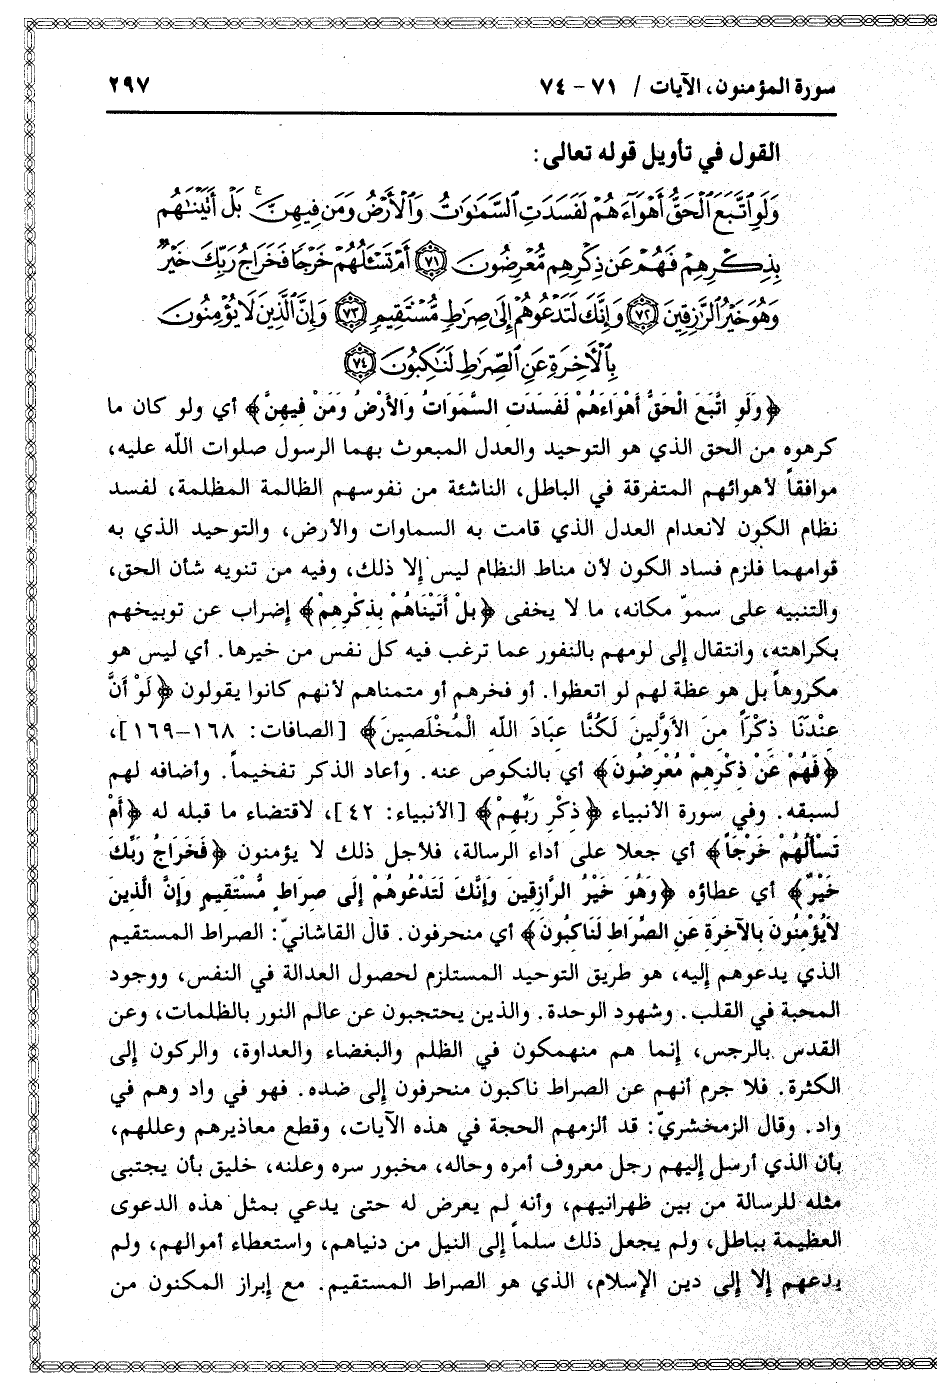 سورة المؤمنون، الآيات / ٧١ - ٧٤ ٢٩٧
القول في تأويل قوله تعالى:
وَلَوِ ٱتَّبَعَ ٱلْحَقُّ أَهْوَآءَهُمْ لَفَسَدَتِ ٱلسَّمَٰوَٰتُ وَٱلْأَرْضُ وَمَن فِيهِنَّ ۚ بَلْ أَتَيْنَٰهُم
بِذِكْرِهِمْ فَهُمْ عَن ذِكْرِهِم مُّعْرِضُونَ ﴿٧١﴾ أَمْ تَسْـَٔلُهُمْ خَرْجًا فَخَرَاجُ رَبِّكَ خَيْرٌ ۖ
وَهُوَ خَيْرُ ٱلرَّٰزِقِينَ ﴿٧٢﴾ وَإِنَّكَ لَتَدْعُوهُمْ إِلَىٰ صِرَٰطٍ مُّسْتَقِيمٍ ﴿٧٣﴾ وَإِنَّ ٱلَّذِينَ لَا يُؤْمِنُونَ
بِٱلْأَخِرَةِ عَنِ ٱلصِّرَٰطِ لَنَٰكِبُونَ ﴿٧٤﴾
﴿وَلَوِ اتَّبَعَ الْحَقُّ أَهْوَاءَهُمْ لَفَسَدَتِ السَّمَوَاتُ وَالأَرْضُ وَمَنْ فِيهِنَّ﴾ أي ولو كان ما
كرهوه من الحق الذي هو التوحيد والعدل المبعوث بهما الرسول صلوات الله عليه،
موافقاً لأهوائهم المتفرقة في الباطل، الناشئة من نفوسهم الظالمة المظلمة، لفسد
نظام الكون لانعدام العدل الذي قامت به السماوات والأرض، والتوحيد الذي به
قوامهما فلزم فساد الكون لأن مناط النظام ليس إلا ذلك، وفيه من تنويه شأن الحق،
والتنبيه على سموّ مكانه، ما لا يخفى ﴿بَلْ أَتَيْنَاهُمْ بِذِكْرِهِمْ﴾ إضراب عن توبيخهم
بكراهته، وانتقال إلى لومهم بالنفور عما ترغب فيه كل نفس من خيرها. أي ليس هو
مكروهاً بل هو عظة لهم لو اتعظوا. أو فخرهم أو متمناهم لأنهم كانوا يقولون ﴿لَوْ أَنَّ
عِنْدَنَا ذِكْراً مِنَ الأَوَّلِينَ لَكُنَّا عِبَادَ اللَّهِ الْمُخْلَصِينَ﴾ [الصافات: ١٦٨-١٦٩]،
﴿فَهُمْ عَنْ ذِكْرِهِمْ مُعْرِضُونَ﴾ أي بالنكوص عنه. وأعاد الذكر تفخيماً. وأضافه لهم
لسبقه. وفي سورة الأنبياء ﴿ذِكْرِ رَبِّهِمْ﴾ [الأنبياء: ٤٢]، لاقتضاء ما قبله له ﴿أَمْ
تَسْأَلُهُمْ خَرْجاً﴾ أي جعلا على أداء الرسالة، فلأجل ذلك لا يؤمنون ﴿فَخَرَاجُ رَبِّكَ
خَيْرٌ﴾ أي عطاؤه ﴿وَهُوَ خَيْرُ الرَّازِقِينَ وَإِنَّكَ لَتَدْعُوهُمْ إِلَى صِرَاطٍ مُّسْتَقِيمٍ وَإِنَّ الَّذِينَ
لاَيُؤْمِنُونَ بِالآخِرَةِ عَنِ الصِّرَاطِ لَنَاكِبُونَ﴾ أي منحرفون. قال القاشانيّ: الصراط المستقيم
الذي يدعوهم إليه، هو طريق التوحيد المستلزم لحصول العدالة في النفس، ووجود
المحبة في القلب. وشهود الوحدة. والذين يحتجبون عن عالم النور بالظلمات، وعن
القدس بالرجس، إنما هم منهمكون في الظلم والبغضاء والعداوة، والركون إلى
الكثرة. فلا جرم أنهم عن الصراط ناكبون منحرفون إلى ضده. فهو في واد وهم في
واد. وقال الزمخشريّ: قد ألزمهم الحجة في هذه الآيات، وقطع معاذيرهم وعللهم،
بأن الذي أرسل إليهم رجل معروف أمره وحاله، مخبور سره وعلنه، خليق بأن يجتبى
مثله للرسالة من بين ظهرانيهم، وأنه لم يعرض له حتى يدعي بمثل هذه الدعوى
العظيمة بباطل، ولم يجعل ذلك سلماً إلى النيل من دنياهم، واستعطاء أموالهم، ولم
يدعهم إلا إلى دين الإسلام، الذي هو الصراط المستقيم. مع إبراز المكنون من